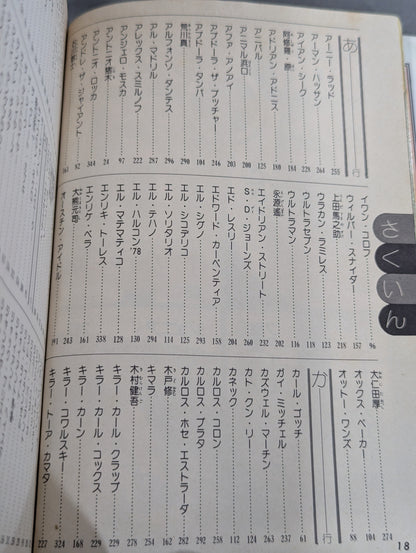 さくいん
あ行
アーニー・ラッド……255
アーマン・ハッサン……264
アイアン・シーク……228
阿修羅・原……184
アドリアン・アドニス……268
アニバル……125
アニマル浜口……200
アファ・アノアイ……203
アブドーラ・ザ・ブッチャー……246
アブドーラ・タンバ……104
荒川真……290
アルフォンソ・ダンテス……296
アル・マドリル……287
アレックス・スミルノフ……222
アンジェロ・モスカ……97
アントニオ猪木……24
アントニオ・ロッカ……344
アンドレ・ザ・ジャイアント……82
163
イワン・コロフ……96
ウィルバー・スナイダー……157
上田馬之助……218
ウラカン・ラミレス
ウルトラセブン
ウルトラマン
永源遙
エイドリアン・ストリート
S・D・ジョーンズ
エド・レスリー
エドワード・カーペンティア
エル・シグノ
エル・シコデリコ
エル・ソリタリオ
エル・テハノ
エル・ハルコン'78
エル・マテマティコ……128
エンリキ・トーレス……338
エンリケ・ベラ……161
大熊元司……243
オースチン・アイドル……191
大仁田厚……274
オックス・ベーカー……104
オットー・ワンズ……88
か行
カール・ゴッチ……61
ガイ・ミッチェル……237
カズウェル・マーチン……244
カト・クン・リー……124
カネック……112
カルロス・コロン
カルロス・プラタ
カルロス・ホセ・エストラーダ
木戸修……162
キマラ……254
木村健吾
キラー・カール・クラップ……292
キラー・カール・コックス……229
キラー・カーン……168
キラー・コワルスキー……324
キラー・トーア・カマタ……227
18